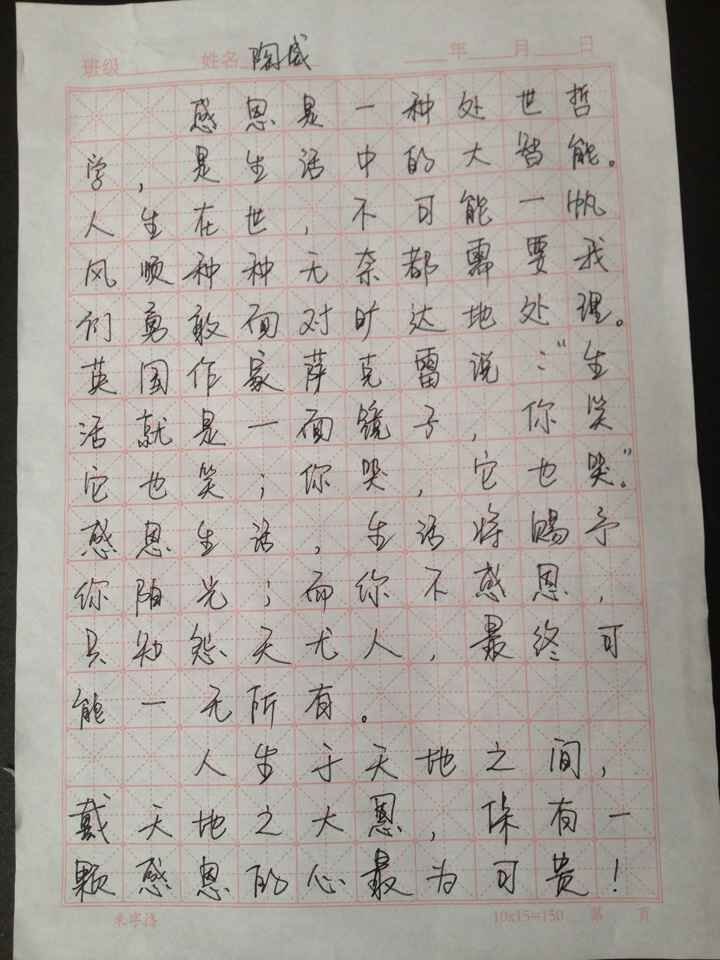 班级 姓名 陶盛 年 月 日
感恩是一种处世哲
学，是生活中的大智能。
人生在世，不可能一帆
风顺种种无奈都需要我
们勇敢面对旷达地处理。
英国作家萨克雷说：“生
活就是一面镜子，你笑
它也笑；你哭，它也哭”。
感恩生活，生活将赐予
你阳光；而你不感恩，
只知怨天尤人，最终可
能一无所有。
人生于天地之间，
戴天地之大恩，保有一
颗感恩的心最为可贵！
米字格 10x15=150 第 页